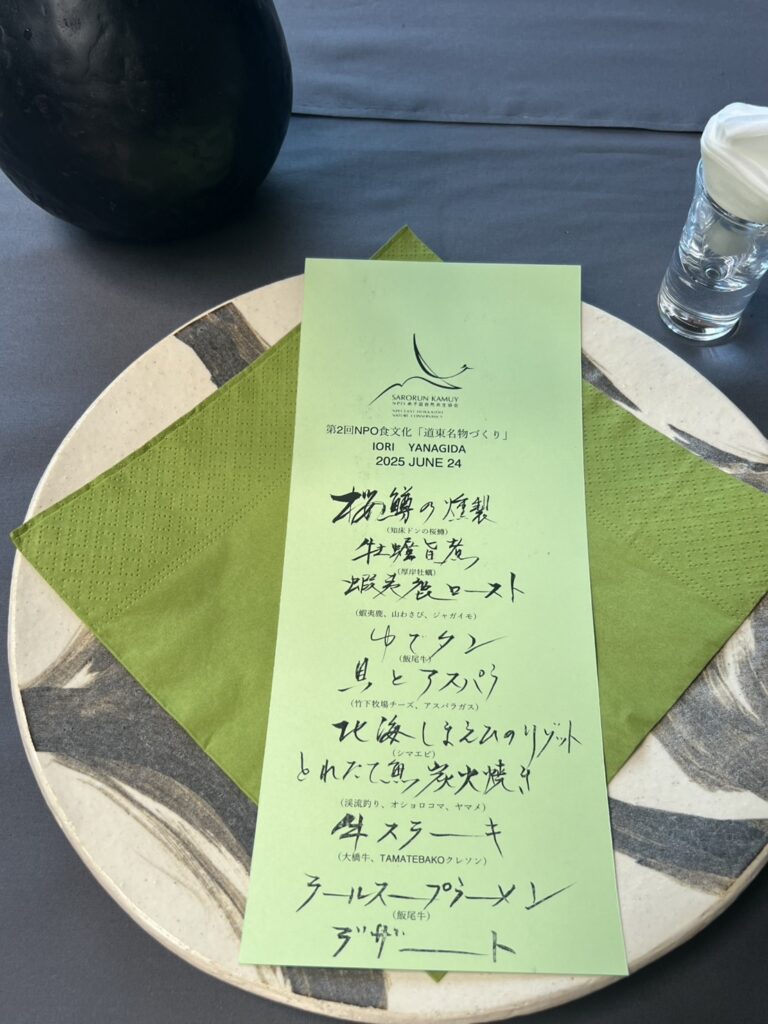 SARORUN KAMUY
NPO 東北道自然共生協会
NPO EAST HOKKAIDO
NATURE CONSERVANCY
第2回NPO食文化「道東名物づくり」
IORI YANAGIDA
2025 JUNE 24
桜鱒の燻製
(知床ドンの桜鱒)
牡蠣旨煮
(厚岸牡蠣)
蝦夷鹿ロースト
(蝦夷鹿、山わさび、ジャガイモ)
ゆでタン
(飯尾牛)
貝とアスパラ
(竹下牧場チーズ、アスパラガス)
北海しまえびのリゾット
(シマエビ)
とれたて魚炭火焼き
(渓流釣り、オショロコマ、ヤマメ)
牛ステーキ
(大橋牛、TAMATEBAKOクレソン)
テールスープラーメン
(飯尾牛)
デザート